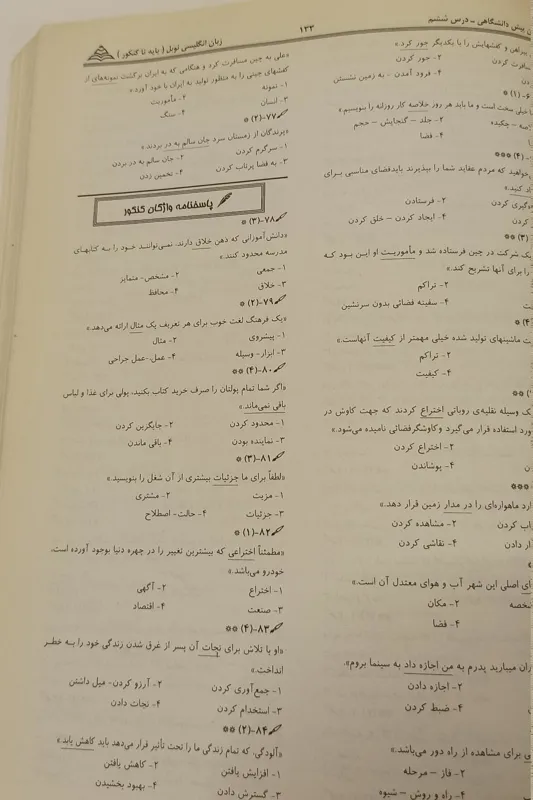 ن پیش دانشگاهی ـ درس ششم
۱۲۳
زبان انگلیسی نوبل ( پایه تا کنکور )
پیراهن و کفشهایش را با یکدیگر جور کرد.»
سافرت کردن ۲- جور کردن
۴- فرود آمدن - به زمین نشستن
۶-(۱) *
خیلی سخت است و ما باید هر روز خلاصه کار روزانه را بنویسیم.»
صه – چکیده ۲- جلد – گنجایش – حجم
۴- فضا
(۴) ***
خواهید که مردم عقاید شما را بپذیرند بایدفضای مناسبی برای
اد کنید.»
وگیری کردن ۲- فرستادن
کردن ۴- ایجاد کردن – خلق کردن
(۳) **
یک شرکت در چین فرستاده شد و مأموریت او این بود که
را برای آنها تشریح کند.»
۲- تراکم
۴- سفینه فضائی بدون سرنشین
۴) *
ت ماشینهای تولید شده خیلی مهمتر از کیفیت آنهاست.»
۲- تراکم
۴- کیفیت
ک وسیله نقلیه‌ی روباتی اختراع کردند که جهت کاوش در
ورد استفاده قرار می‌گیرد و کاوشگرفضائی نامیده می‌شود.»
۲- اختراع کردن
۴- پوشاندن
***
ارد ماهواره‌ای را در مدار زمین قرار دهد.»
اب کردن ۲- مشاهده کردن
دادن ۴- نقاشی کردن
ای اصلی این شهر آب و هوای معتدل آن است.»
شخصه ۲- مکان
۴- فضا
ران میبارید پدرم به من اجازه داد به سینما بروم.
۲- اجازه دادن
کردن ۴- ضبط کردن
ی برای مشاهده از راه دور می‌باشد.»
۲- فاز – مرحله
۴- راه و روش – شیوه
«علی به چین مسافرت کرد و هنگامی که به ایران برگشت نمونه‌های از
کفشهای چینی را به منظور تولید به ایران با خود آورد.»
۱- نمونه ۲- مأموریت
۳- انسان ۴- سنگ
۷۷-(۲) *
«پرندگان از زمستان سرد جان سالم به در بردند.»
۱- سرگرم کردن ۲- جان سالم به در بردن
۳- به فضا پرتاب کردن ۴- تخمین زدن
پاسخنامه واژگان کنکور
۷۸-(۳) *
«دانش‌آموزانی که ذهن خلاق دارند، نمی‌توانند خود را به کتابهای
مدرسه محدود کنند.»
۱- جمعی ۲- مشخص- متمایز
۳- خلاق ۴- محافظ
۷۹-(۲) *
«یک فرهنگ لغت خوب برای هر تعریف یک مثال ارائه می‌دهد.»
۱- پیشروی ۲- مثال
۳- ابزار- وسیله ۴- عمل-عمل جراحی
۸۰-(۴) **
«اگر شما تمام پولتان را صرف خرید کتاب بکنید، پولی برای غذا و لباس
باقی نمی‌ماند.»
۱- محدود کردن ۲- جایگزین کردن
۳- نماینده بودن ۴- باقی ماندن
۸۱-(۳) *
«لطفاً برای ما جزئیات بیشتری از آن شغل را بنویسید.»
۱- مزیت ۲- مشتری
۳- جزئیات ۴- حالت- اصطلاح
۸۲-(۱) *
«مطمئناً اختراعی که بیشترین تغییر را در چهره دنیا بوجود آورده است،
خودرو می‌باشد.»
۱- اختراع ۲- آگهی
۳- صنعت ۴- اقتصاد
۸۳-(۴) **
«او با تلاش برای نجات آن پسر از غرق شدن زندگی خود را به خطر
انداخت.»
۱- جمع‌آوری کردن ۲- آرزو کردن- میل داشتن
۳- استخدام کردن ۴- نجات دادن
۸۴-(۲) **
«آلودگی، که تمام زندگی ما را تحت تأثیر قرار می‌دهد باید کاهش یابد.»
۱- افزایش یافتن ۲- کاهش یافتن
۳- گسترش دادن ۴- بهبود بخشیدن